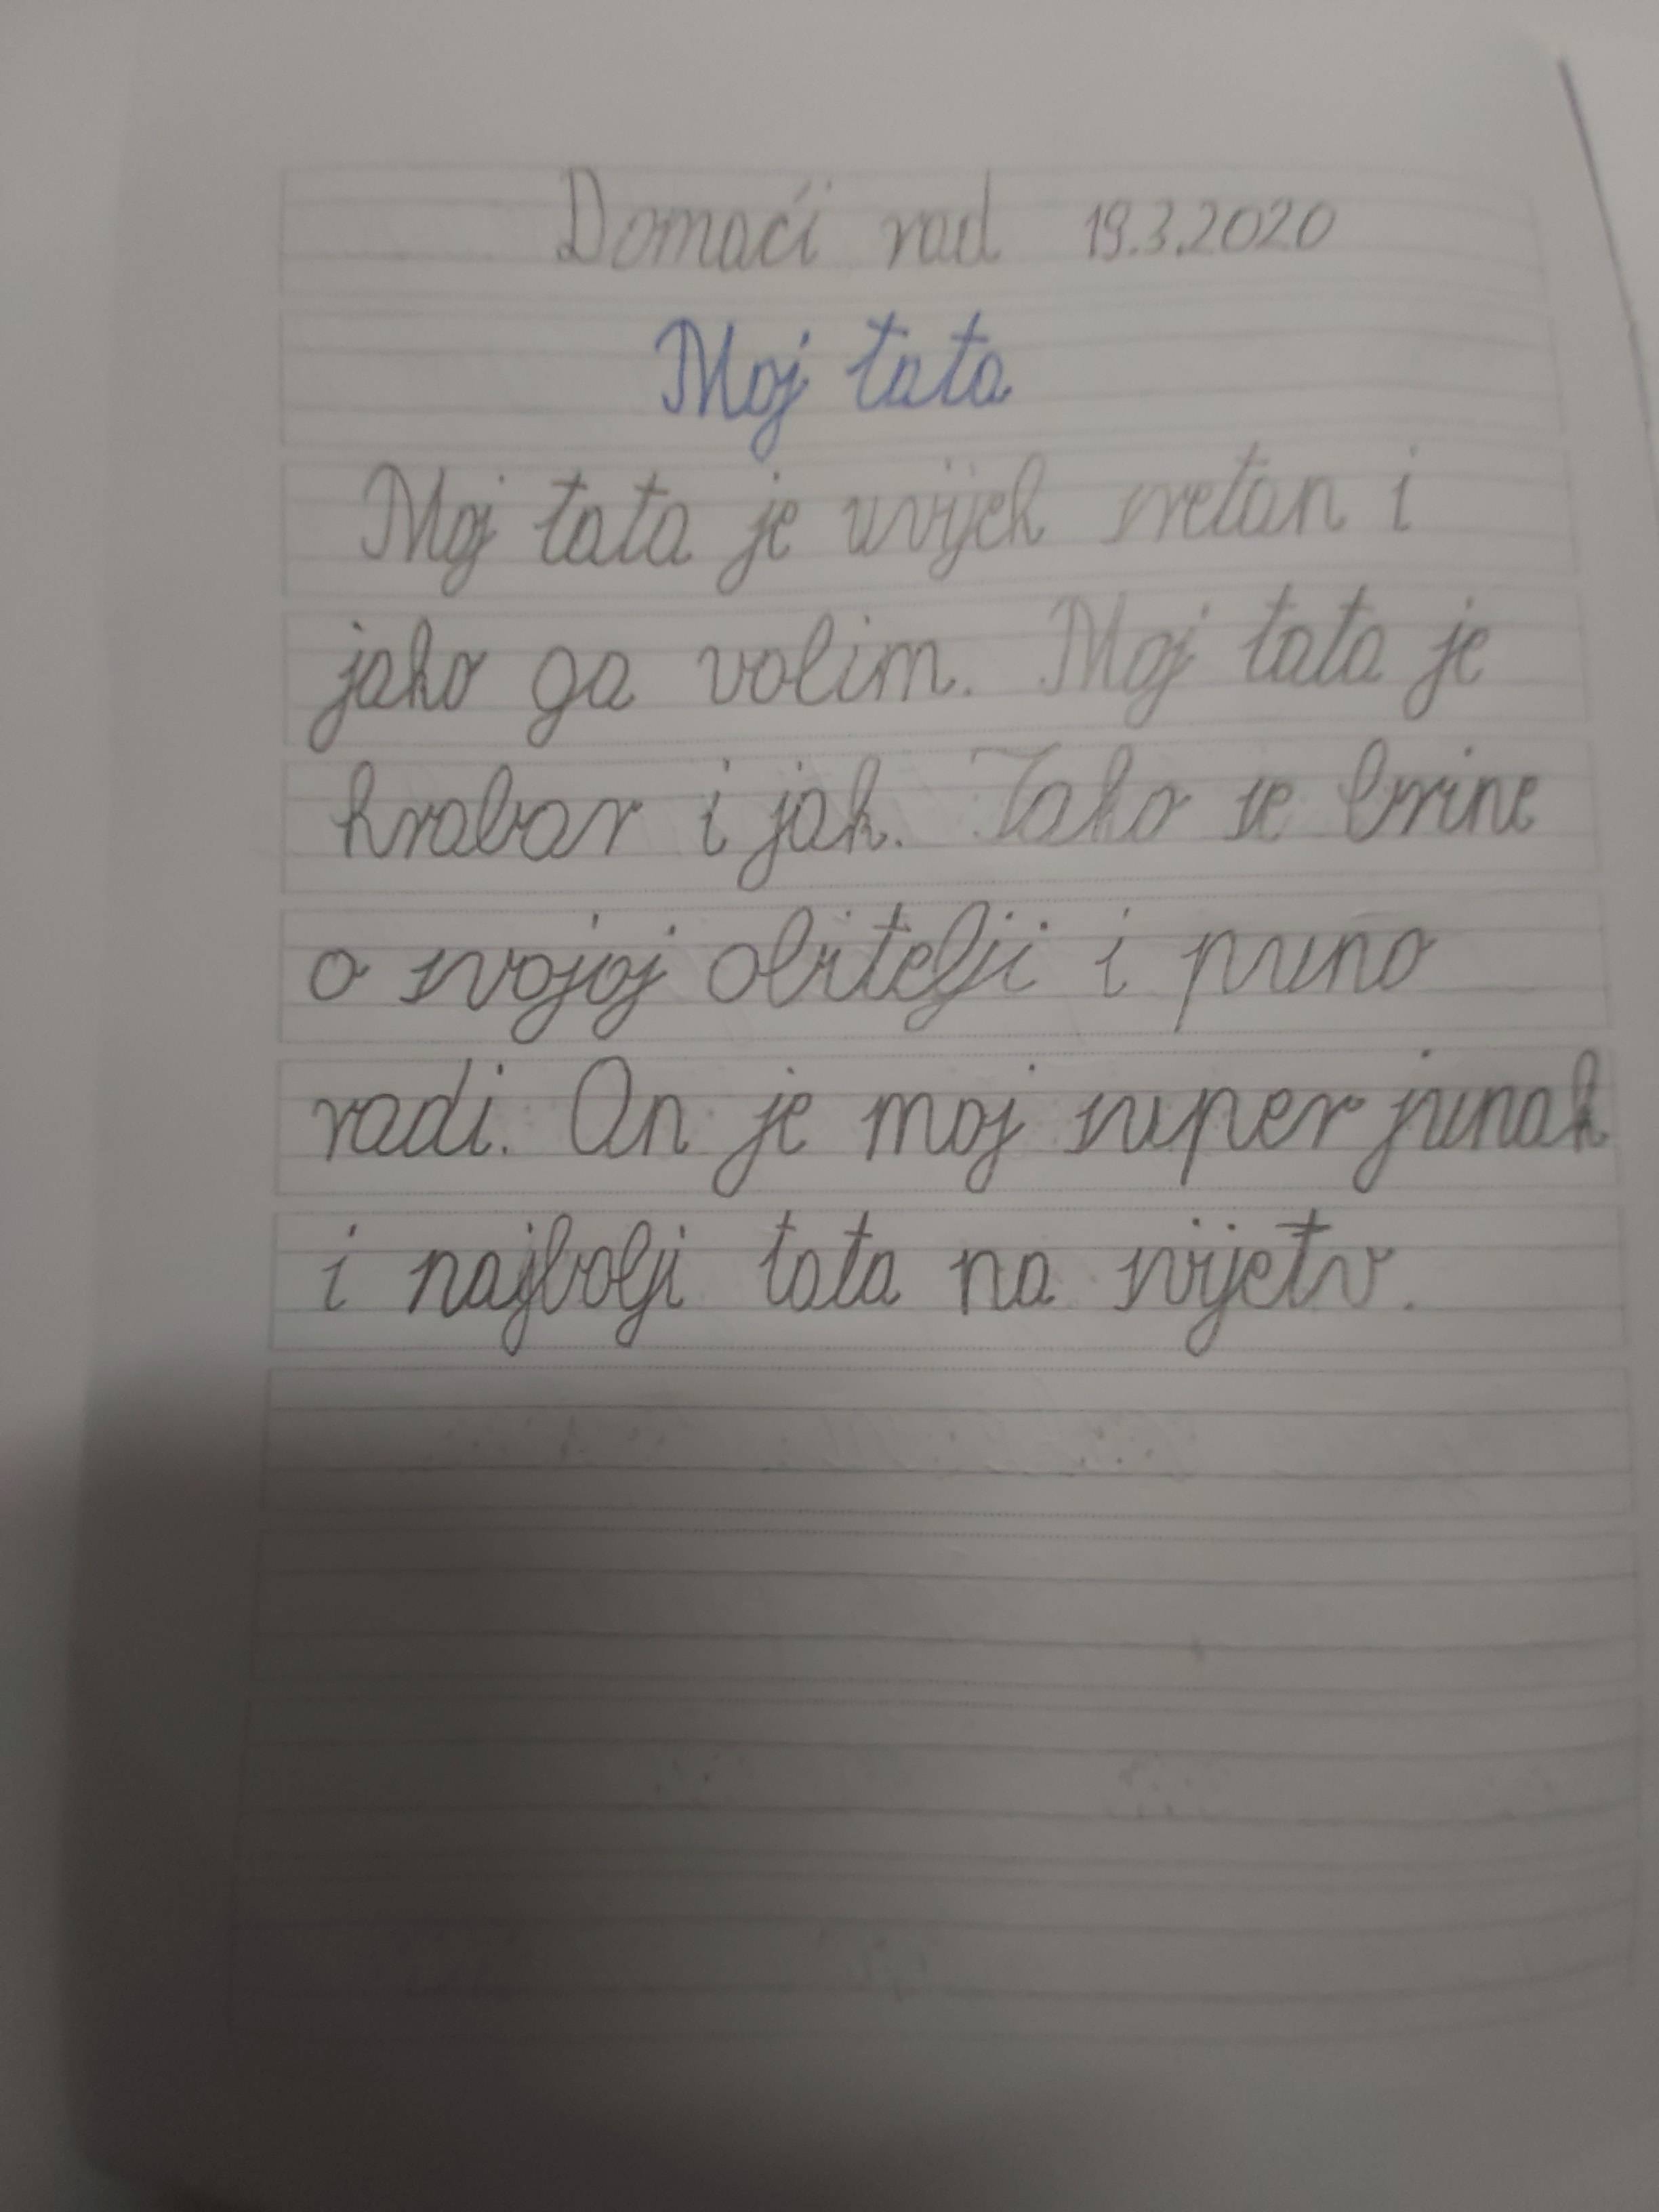 Domaći rad 19.3.2020
Moj tata
Moj tata je uvijek sretan i
jako ga volim. Moj tata je
hrabar i jak. Jako se brine
o svojoj obitelji i puno
radi. On je moj super junak
i najbolji tata na svijetu.